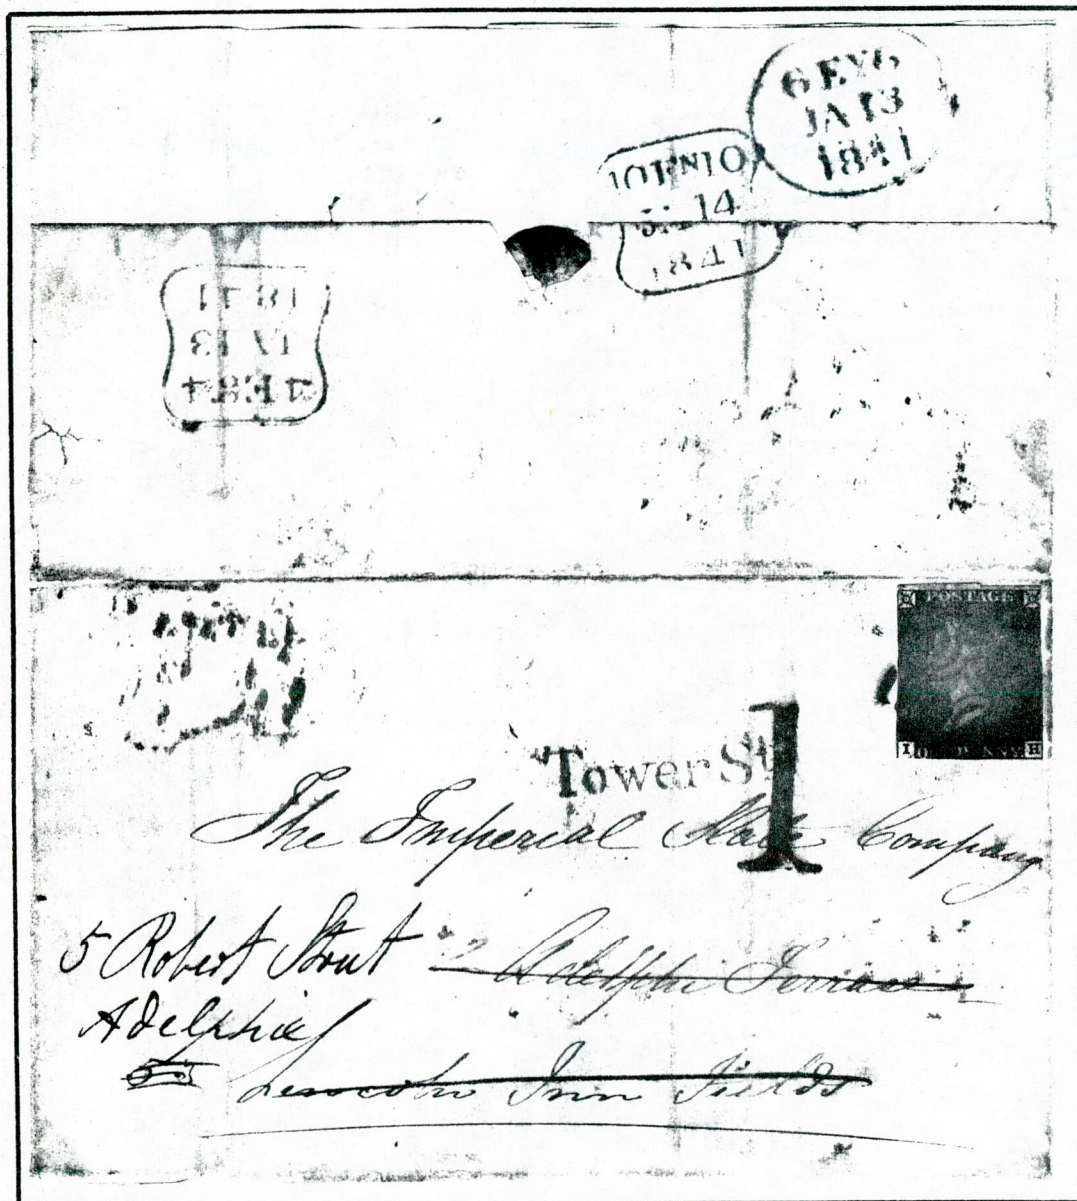 6 EV 6
JA 13
1841
10 F N 10
JA 14
1841
4 EV 4
JA 13
1841
POSTAGE
I ONE PENNY H
Tower St
1
The Imperial Slate Company
5 Robert Street 2 Adelphi Terrace
Adelphi
Lincoln Inn Fields